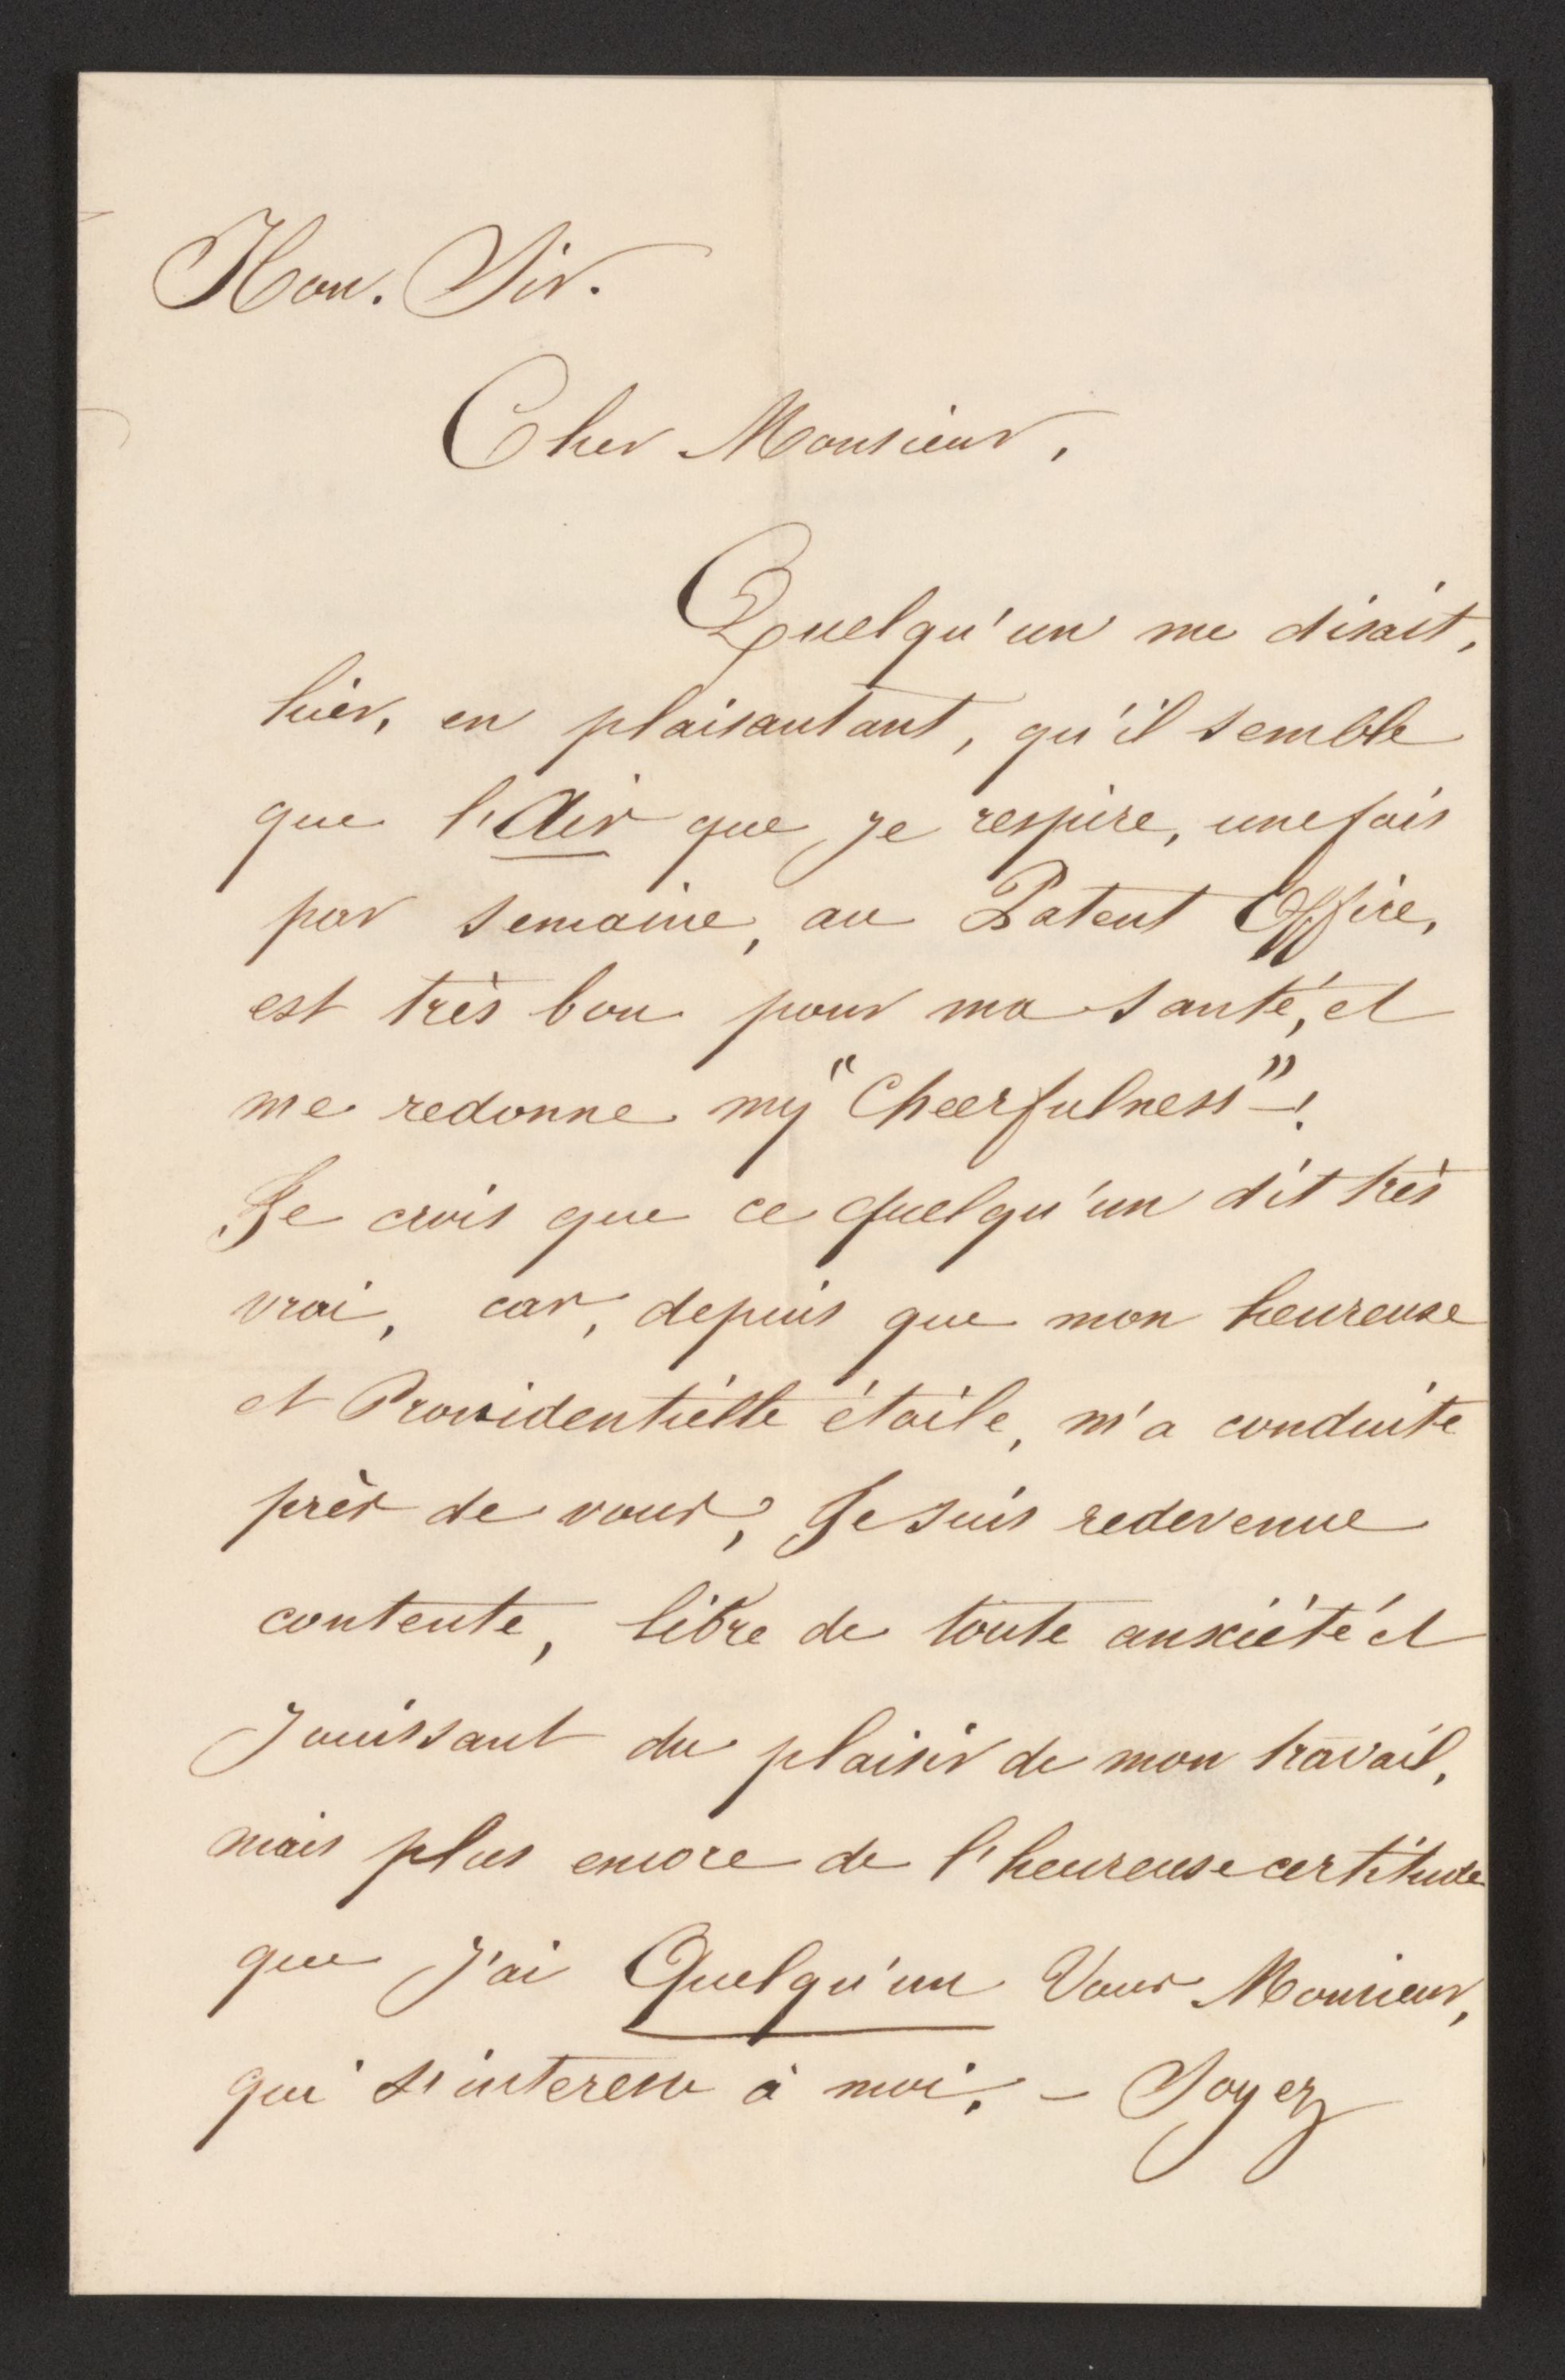 Hon. Sir.
Cher Monsieur,
Quelqu'un me disait,
hier, en plaisantant, qu'il semble
que l'Air que je respire, une fois
par semaine, au Patent Office,
est très bon pour ma santé, et
me redonne my "Cheerfulness" –!
Je crois que ce quelqu'un dit très
vrai, car, depuis que mon heureuse
et Providentièlle étoile, m'a conduite
près de vous, Je suis redevenue
contente, libre de toute anxiété et
Jouissant du plaisir de mon travail,
mais plus encore de l'heureuse certitude
que J'ai Quelqu'un Vous Monsieur,
qui s'interesse à moi. – Soyez